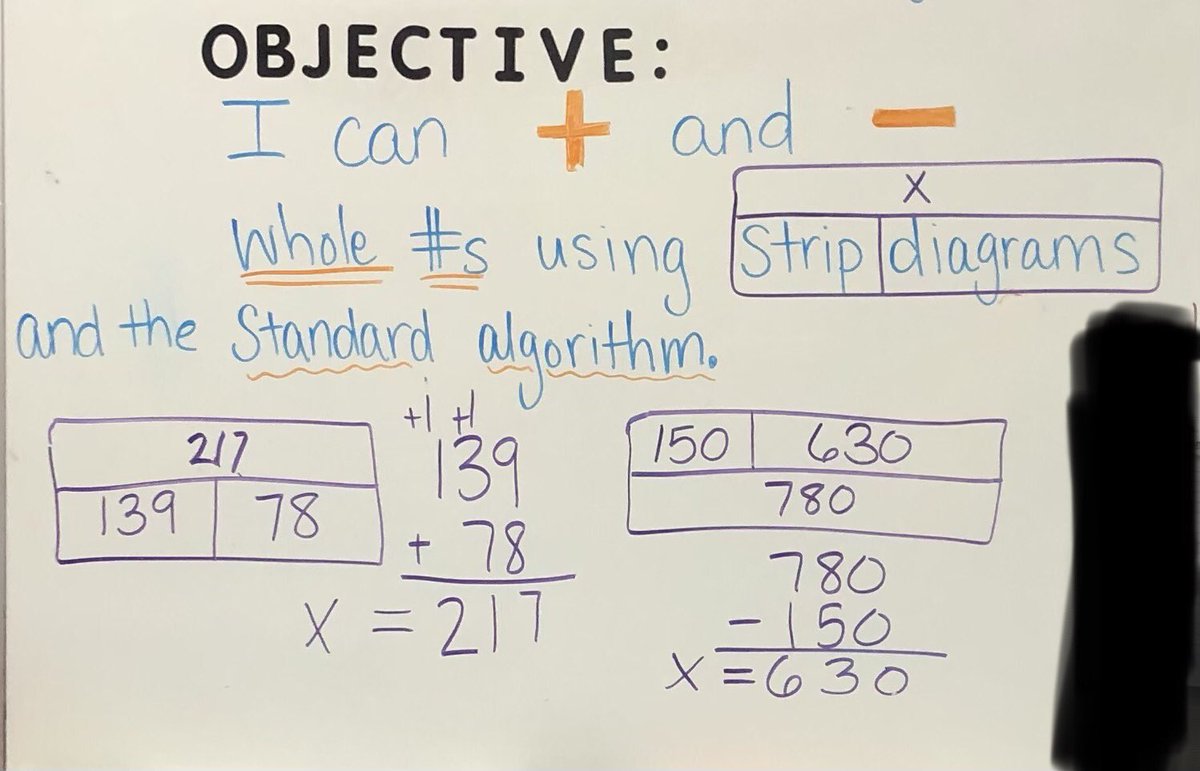 OBJECTIVE:
I can + and −
X
Whole #s using Strip diagrams
and the Standard algorithm.
217
139 78
+1 +1
139
+ 78
X = 217
150 630
780
780
- 150
X = 630